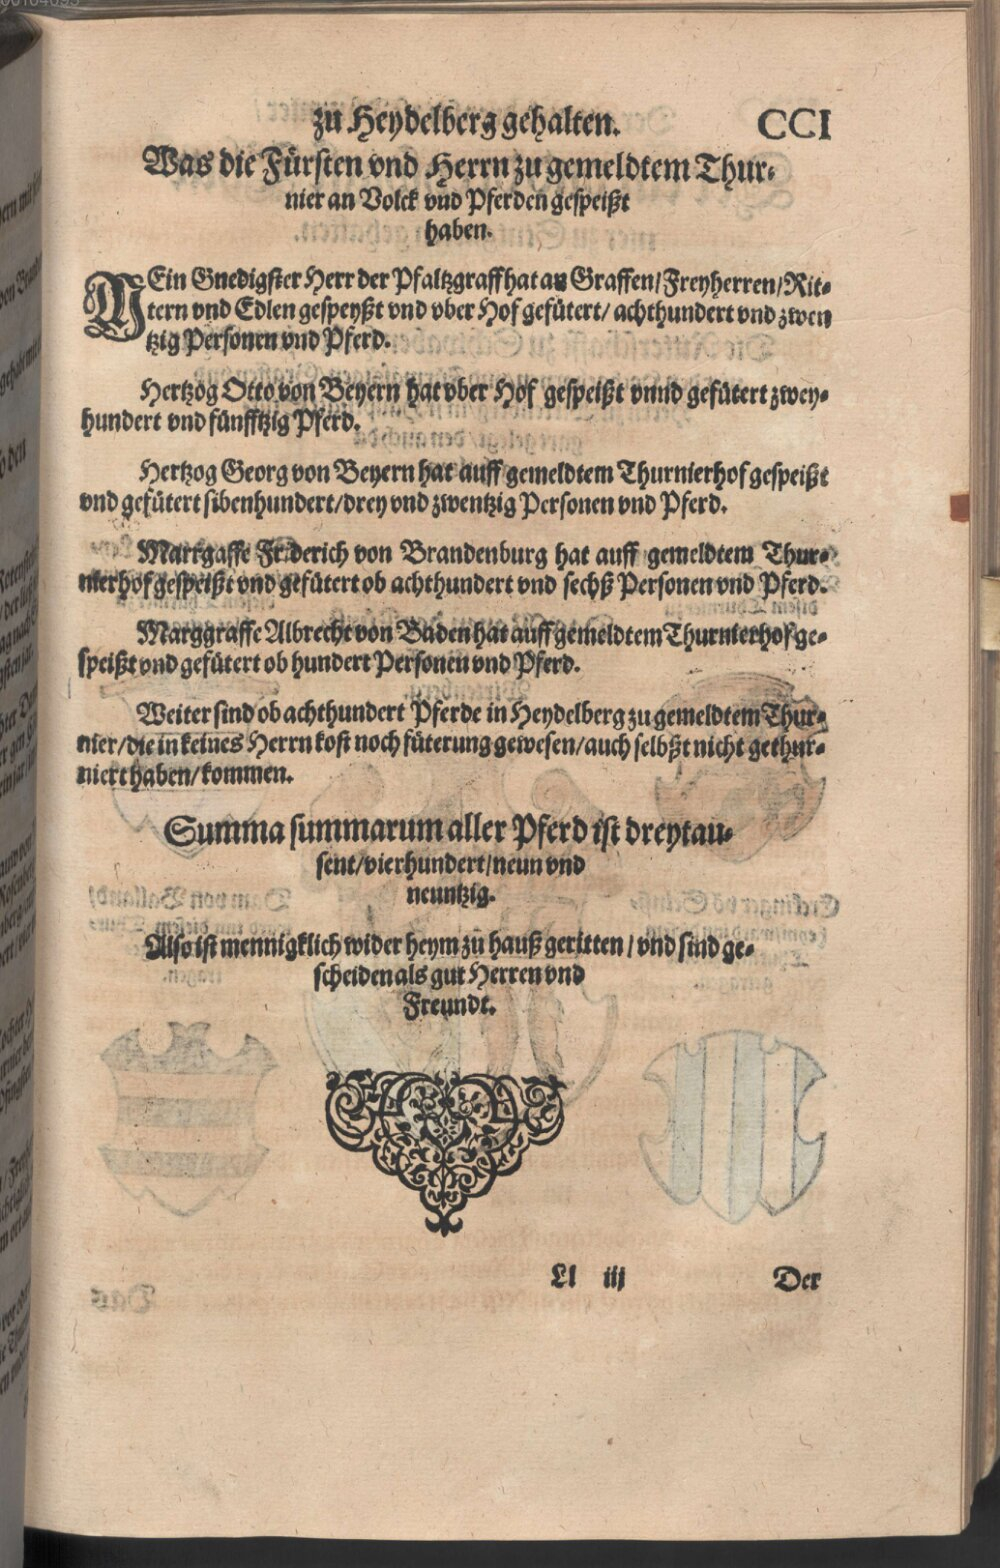 zu Heydelberg gehalten. CCI
Was die Fürsten vnd Herrn zu gemeldtem Thur-
nier an Volck vnd Pferden gespeißt
haben.
MEin Gnedigster Herr der Pfaltzgraff hat an Graffen/Freyherren/Rit-
tern vnd Edlen gespeyßt vnd vber Hof gefütert/ achthundert vnd zwen
tzig Personen vnd Pferd.
Hertzog Otto von Beyern hat vber Hof gespeißt vnnd gefütert zwey-
hundert vnd fünfftzig Pferd.
Hertzog Georg von Beyern hat auff gemeldtem Thurnierhof gespeißt
vnd gefütert sibenhundert/drey vnd zwentzig Personen vnd Pferd.
Marrgaffe Friderich von Brandenburg hat auff gemeldtem Thur-
nierhof gespeißt vnd gefütert ob achthundert vnd sechß Personen vnd Pferd.
Marggraffe Albrecht von Baden hat auff gemeldtem Thurnierhof ge-
speißt vnd gefütert ob hundert Personen vnd Pferd.
Weiter sind ob achthundert Pferde in Heydelberg zu gemeldtem Thur-
nier/die in keines Herrn kost noch füterung gewesen/auch selbßt nicht gethur-
niert haben/kommen.
Summa summarum aller Pferd ist dreytau-
sent/vierhundert/neun vnd
neuntzig.
Also ist mennigklich wider heym zu hauß geritten/ vnd sind ge-
scheiden als gut Herren vnd
Freundt.
Ll iij Der